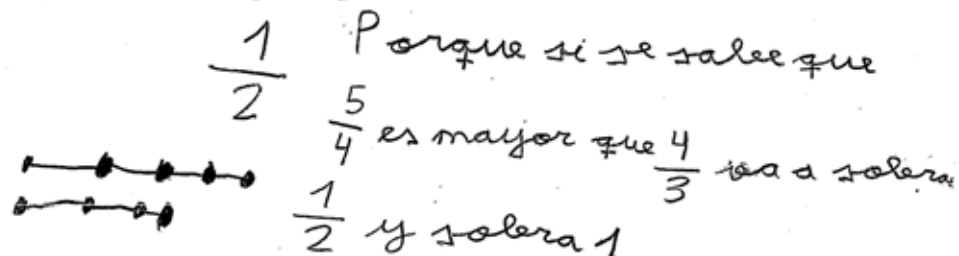 1/2 Porque si se sabe que
5/4 es mayor que 4/3 va a sobrar
1/2 y sobra 1